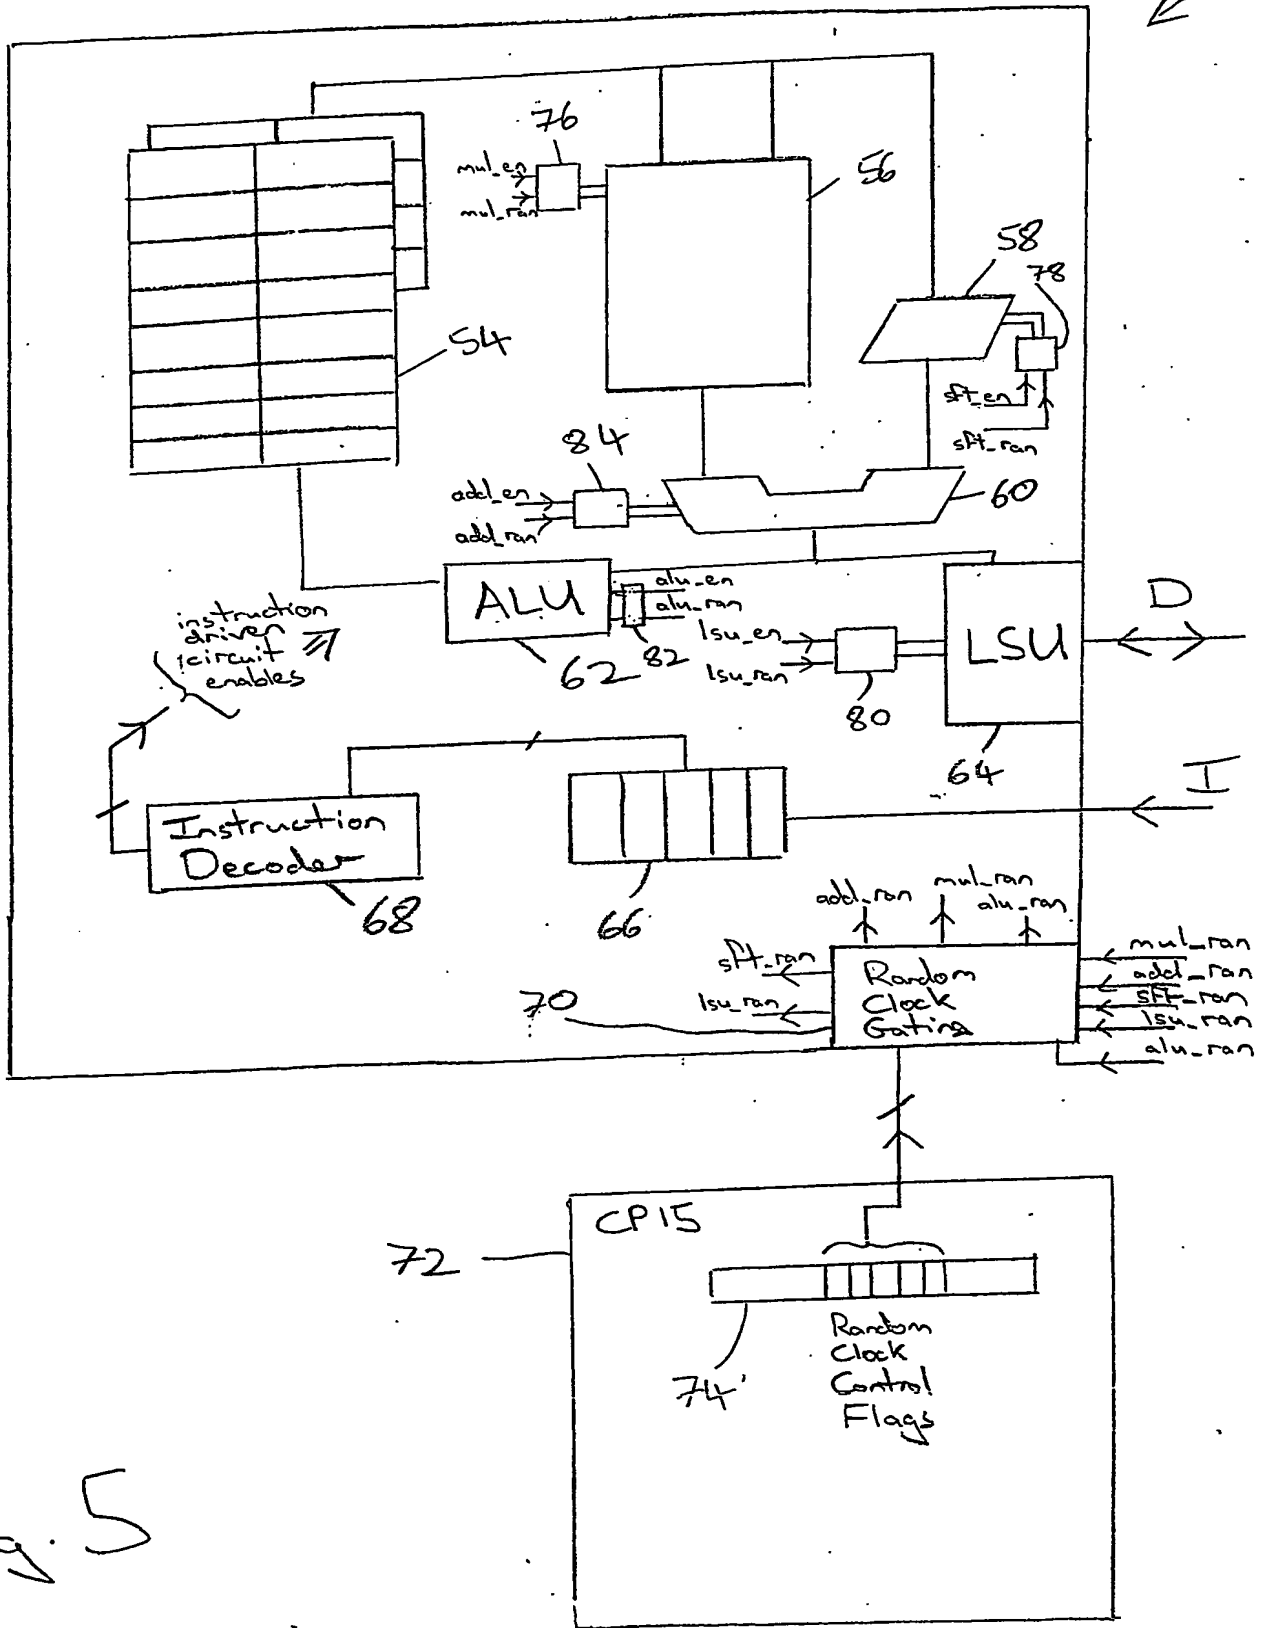 76
mul_en
mul_ran
56
58
78
54
sft_en
sft_ran
84
add_en
add_ran
60
ALU
alu_en
alu_ran
62
82
lsu_en
lsu_ran
80
LSU
64
D
I
instruction
driven
circuit
enables
Instruction
Decoder
68
66
add_ran
mul_ran
alu_ran
sft_ran
lsu_ran
70
Random
Clock
Gating
mul_ran
add_ran
sft_ran
lsu_ran
alu_ran
72
CP15
74
Random
Clock
Control
Flags
g. 5